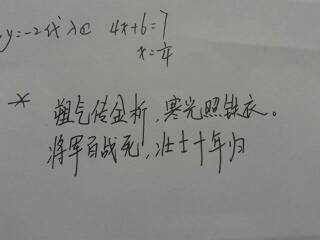 y=-2代入② 4x+6=7
x=1/4
* 朔气传金析,寒光照铁衣。
将军百战死,壮士十年归